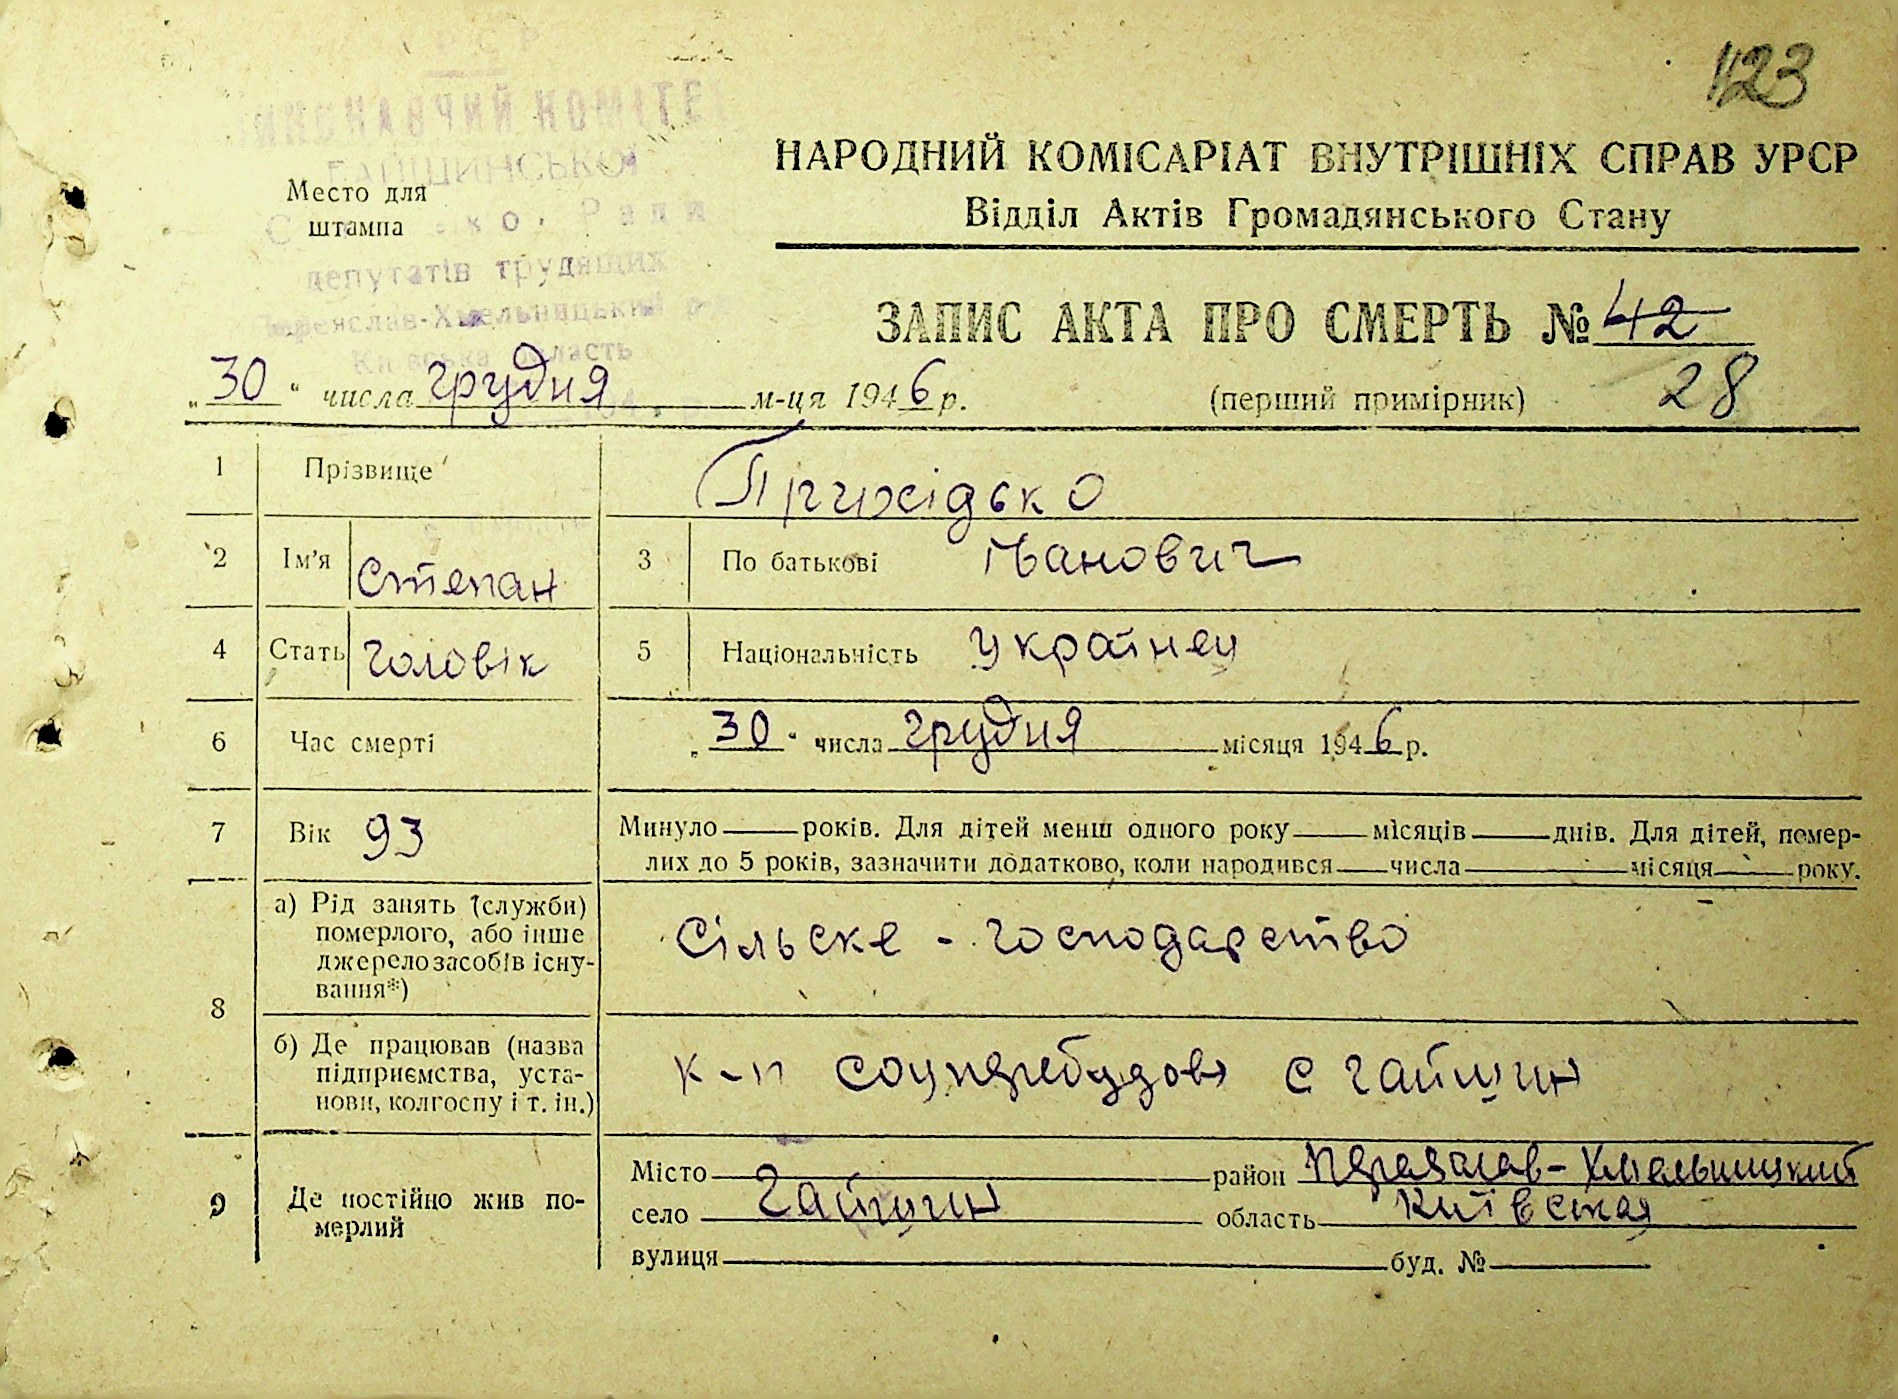 123
УРСР
ВИКОНАВЧИЙ КОМІТЕТ
ГАЙШИНСЬКОЇ
Ради
депутатів трудящих
Переяслав-Хмельницький
Київська область
Место для
штампа
НАРОДНИЙ КОМІСАРІАТ ВНУТРІШНІХ СПРАВ УРСР
Відділ Актів Громадянського Стану
ЗАПИС АКТА ПРО СМЕРТЬ № 42
„30“ числа грудня м-ця 1946 р. (перший примірник) 28
1 Прізвище Прихідько
2 Ім'я Степан 3 По батькові Іванович
4 Стать Чоловік 5 Національність Украінец
6 Час смерті „30“ числа грудня місяця 1946 р.
7 Вік 93 Минуло років. Для дітей менш одного року місяців днів. Для дітей, помер-
лих до 5 років, зазначити додатково, коли народився числа місяця року.
8 а) Рід занять (служби)
померлого, або інше
джерело засобів існу-
вання*)
Сільске - господарство
б) Де працював (назва
підприємства, уста-
нови, колгоспу і т. ін.)
к-п соцперебудов с Гайшин
9 Де постійно жив по-
мерлий
Місто район Переяслав-Хмельницкий
село Гайшин область Київская
вулиця буд. №